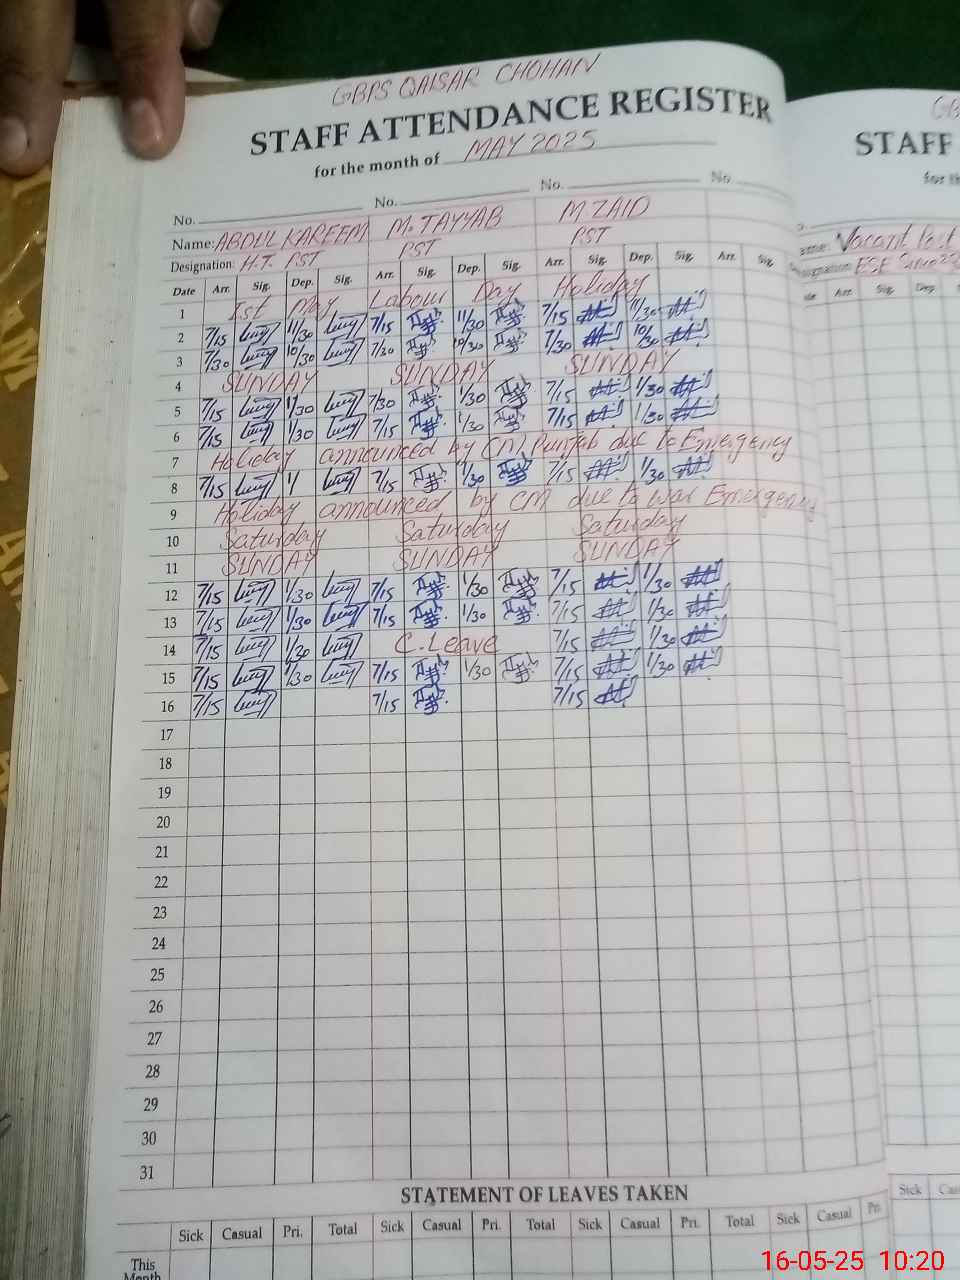 GBPS QAISAR CHOHAN
STAFF ATTENDANCE REGISTER
for the month of MAY 2025
No. No. No. No.
Name: ABDUL KAREEM M. TAYYAB M ZAID
Designation: H.T. PST PST PST
Date Arr. Sig. Dep. Sig. Arr. Sig. Dep. Sig. Arr. Sig. Dep. Sig. Arr. Sig.
1 Ist May Labour Day Holiday
2 7/15 11/30 7/15 11/30 7/15 11/30
3 7/30 10/30 7/30 10/30 7/30 10/30
4 SUNDAY SUNDAY SUNDAY
5 7/15 1/30 7/30 1/30 7/15 1/30
6 7/15 1/30 7/15 1/30 7/15 1/30
7 Holiday announced by CM, Punjab due to Emergency
8 7/15 1/ 7/15 1/30 7/15 1/30
9 Holiday announced by CM due to war Emergency
10 Saturday Saturday Saturday
11 SUNDAY SUNDAY SUNDAY
12 7/15 1/30 7/15 1/30 7/15 1/30
13 7/15 1/30 7/15 1/30 7/15 1/30
14 7/15 1/30 C. Leave 7/15 1/30
15 7/15 1/30 7/15 1/30 7/15 1/30
16 7/15 7/15 7/15
17
18
19
20
21
22
23
24
25
26
27
28
29
30
31
STATEMENT OF LEAVES TAKEN
Sick Casual Pri. Total Sick Casual Pri. Total Sick Casual Pri. Total Sick Casual Pri.
This
Month
STAFF
for th
Vacant Post
ESE
Arr. Sig. Dep Sig.
Sick Cas
16-05-25 10:20